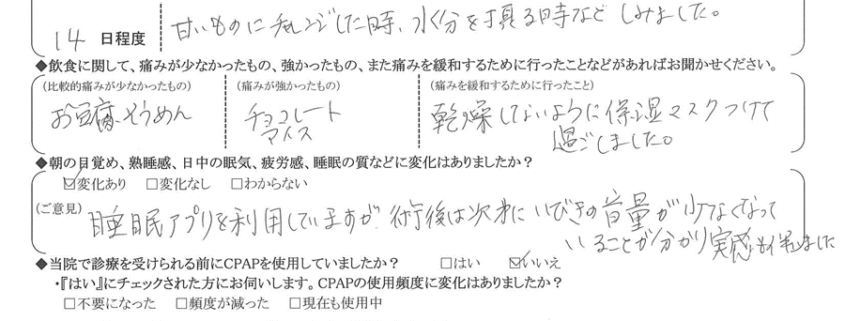 14 日程度 甘いものにチャレンジした時、水分を頂る時など しみました。
◆飲食に関して、痛みが少なかったもの、強かったもの、また痛みを緩和するために行ったことなどがあればお聞かせください。
(比較的痛みが少なかったもの) (痛みが強かったもの) (痛みを緩和するために行ったこと)
お豆腐、そうめん チョコレート 乾燥しないように保湿マスクつけて
アイス 過ごしました。
◆朝の目覚め、熟睡感、日中の眠気、疲労感、睡眠の質などに変化はありましたか?
☑変化あり □変化なし □わからない
(ご意見) 睡眠アプリを利用していますが、術後は次第にいびきの音量が少なくなって
いることが分かり実感も伴ました
◆当院で診療を受けられる前にCPAPを使用していましたか? □はい ☑いいえ
・『はい』にチェックされた方にお伺いします。CPAPの使用頻度に変化はありましたか?
□不要になった □頻度が減った □現在も使用中